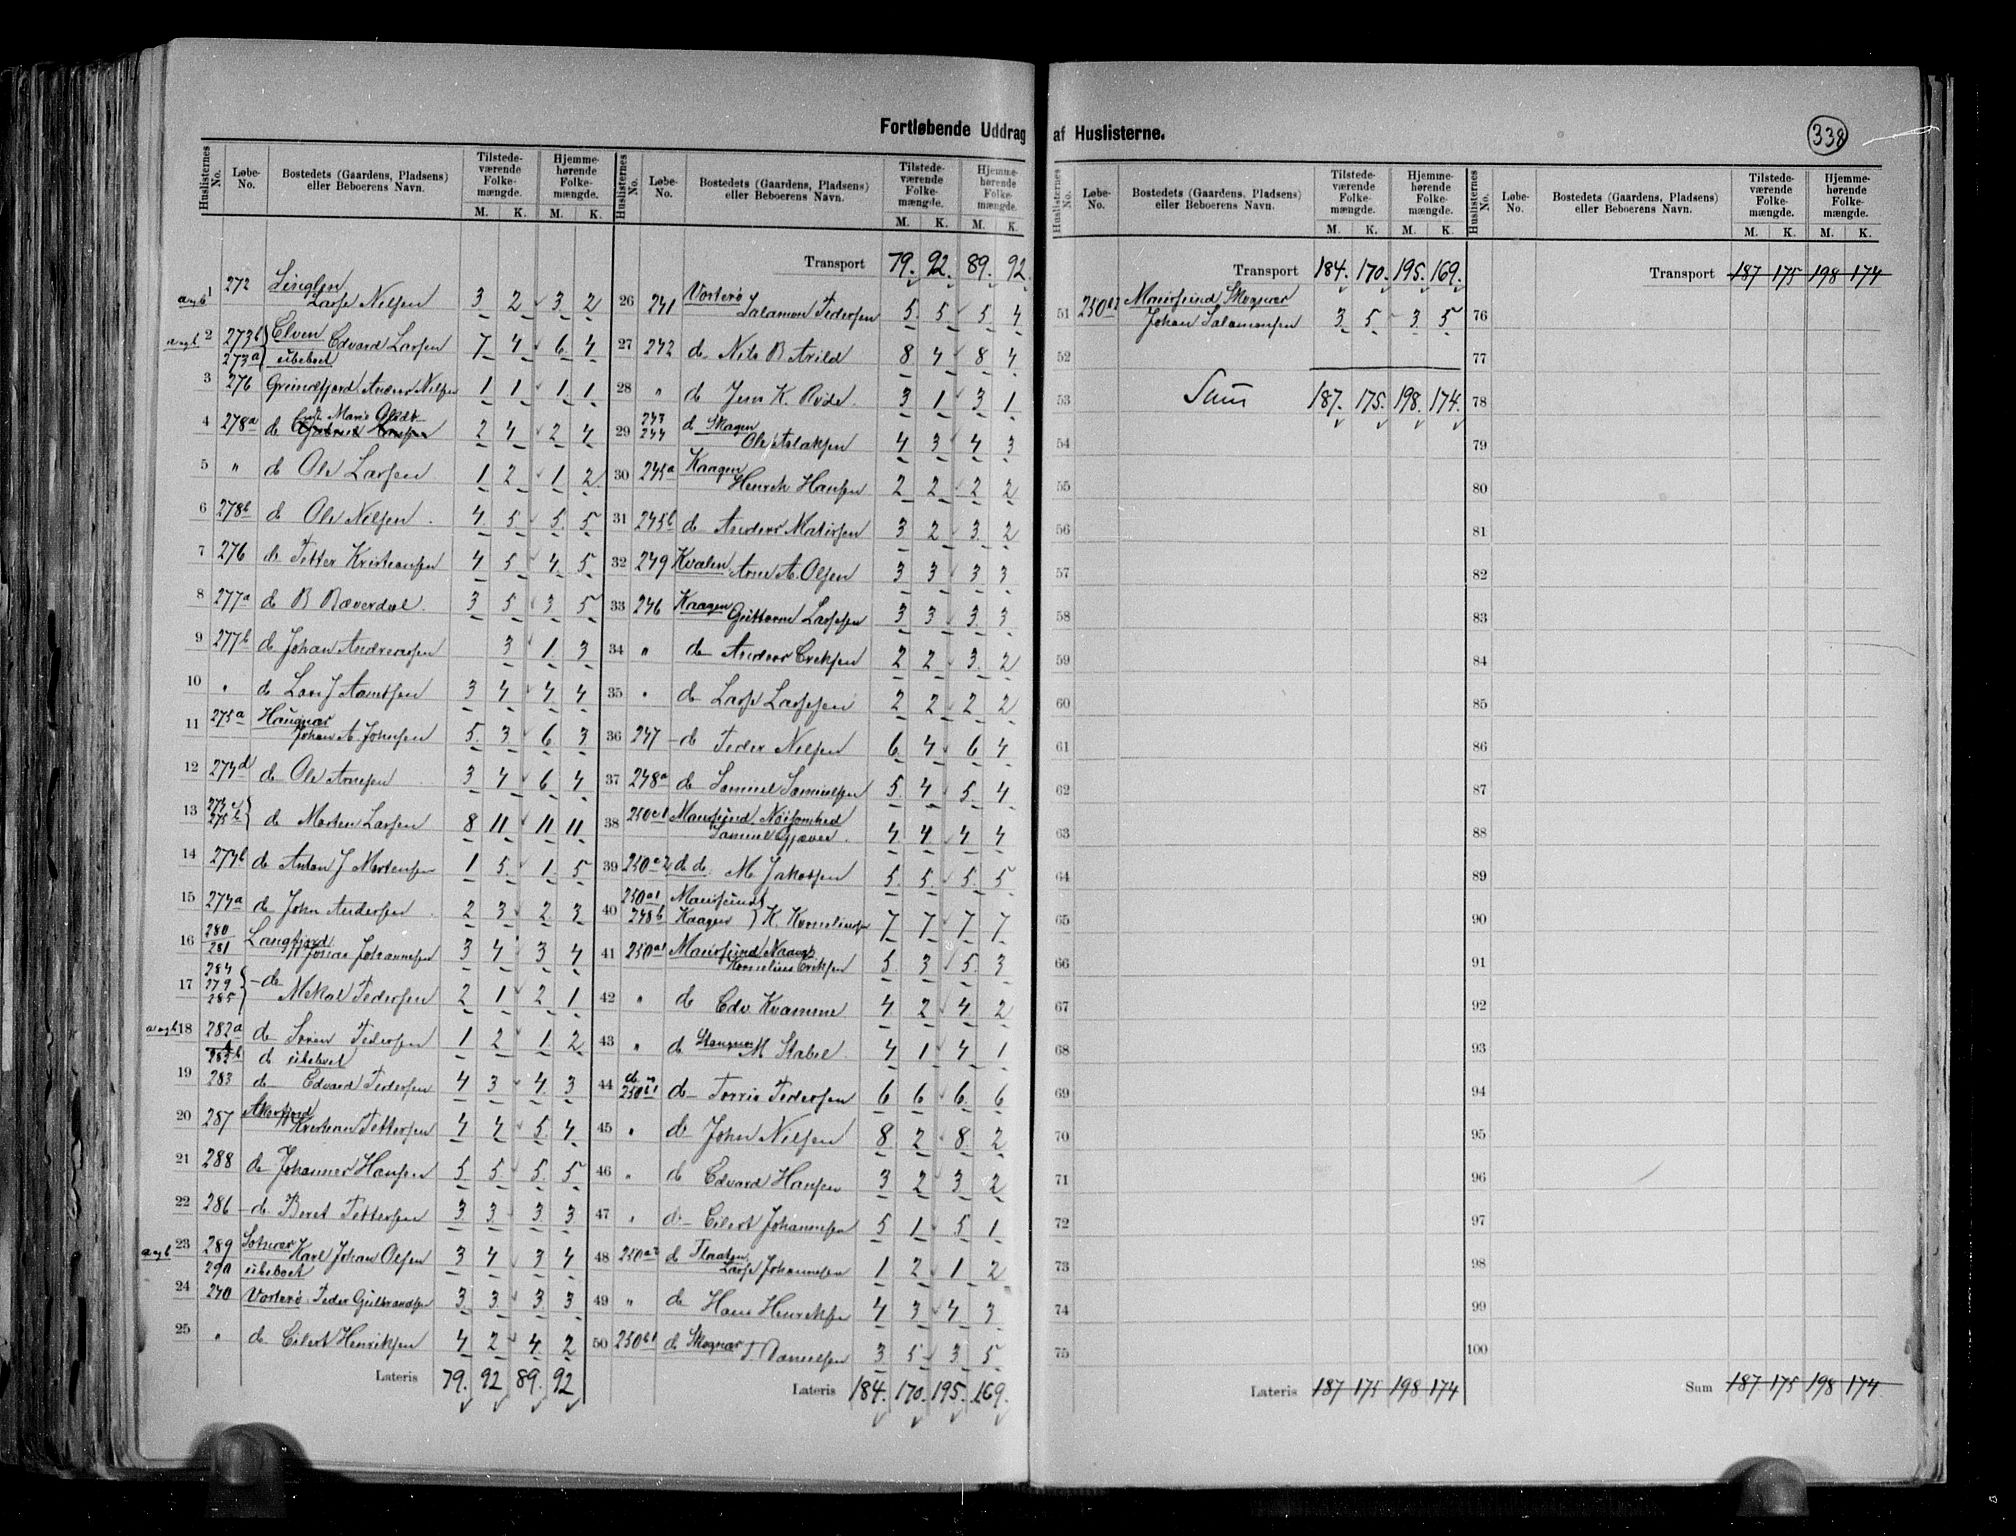 Fortløbende Uddrag af Huslisterne.
338
Huslisternes No. Løbe-No. Bostedets (Gaardens, Pladsens) eller Beboerens Navn. Tilstedeværende Folkemængde. M. K. Hjemmehørende Folkemængde. M. K.
1 272
Larse Nilsen 3 2 3 2
2 273b Elven Edvard Larsen 7 4 6 4
273a ubeboet
3 276 Anders Nilsen 1 1 1 1
4 278a do 2 4 2 4
5 " do Ole Larsen 1 2 1 2
6 278b do Ole Nilsen 4 5 5 5
7 276 do Petter Kristiansen 4 5 4 5
8 277a do B Bæverdal 3 5 3 5
9 277b do Johan Andreassen 3 1 3
10 " do Lars J Arntsen 3 4 4 4
11 275a Haugnæs
Johan A. Johnsen 5 3 6 3
12 274d do Ole Arnesen 3 4 6 4
13 275b do Morten Larsen 8 11 11 11
14 274b do Anton J Mortensen 1 5 1 5
15 274a do John Andersen 2 3 2 3
16 280 281 Langfjord
Jonas Johannesen 3 4 3 4
17 284 279 285 do
Mekal Pedersen 2 1 2 1
18 282a do Sören Pedersen 1 2 1 2
282b do ubeboet
19 283 do Edvard Pedersen 4 3 4 3
20 287 Akerfjord
Kristian Pettersen 4 4 5 4
21 288 do Johannes Hansen 5 5 5 5
22 286 do Beret Pettersen 3 3 3 3
23 289 Karl Johan Olsen 3 4 3 4
290 ubeboet
24 240 Vorterø Peder Gulbrandsen 3 3 3 3
25 " do Eilert Henriksen 4 2 4 2
Lateris 79. 92 89. 92
Huslisternes No. Løbe-No. Bostedets (Gaardens, Pladsens) eller Beboerens Navn. Tilstedeværende Folkemængde. M. K. Hjemmehørende Folkemængde. M. K.
Transport 79. 92. 89. 92.
26 241 Vorterø
Salamon Pedersen 5 5 5 4
27 242 do Nils B Arild 8 4 8 4
28 " do Jens K. 3 1 3 1
29 243 244 do Skagen
Ole Aslaksen 4 3 4 3
30 245a Kaagen
Henrik Hansen 2 2 2 2
31 245b do Anders Matisen 3 2 3 2
32 249 Kvalen Arne A. Olsen 3 3 3 3
33 246 Kaagen Guttorm Larsen 3 3 3 3
34 " do Anders Eriksen 2 2 3 2
35 " do Lars Larsen 2 2 2 2
36 247 do Peder Nilsen 6 4 6 4
37 248a do Samuel Samuelsen 5 4 5 4
38 250c1 Maursund Nøisomhed
Samuel Gjæver 4 4 4 4
39 250c2 do do. M. Jakobsen 5 5 5 5
40 250a1 Maursund
248b Kaagen K. Korneliusen 7 7 7 7
41 250a1 Maursund
Kornelius Eriksen 5 3 5 3
42 " do Edv Kvamme 4 2 4 2
43 " do M Stabel 4 1 4 1
44 do 250b1 do Torris Pedersen 6 6 6 6
45 " do John Nilsen 8 2 8 2
46 " do Edvard Hansen 3 2 3 2
47 " do Eilert Johannesen 5 1 5 1
48 250a2 do Flaaten
Lars Johannesen 1 2 1 2
49 " do Hans Henriksen 4 3 4 3
50 250b1 do Skognæs
Danielsen 3 5 3 5
Lateris 184. 170. 195. 169.
Huslisternes No. Løbe-No. Bostedets (Gaardens, Pladsens) eller Beboerens Navn. Tilstedeværende Folkemængde. M. K. Hjemmehørende Folkemængde. M. K.
Transport 184. 170. 195. 169.
51 Maursund Skognæs
Johan Salamonsen 3 5 3 5
52
53 Sum 187. 175. 198. 174.
54
55
56
57
58
59
60
61
62
63
64
65
66
67
68
69
70
71
72
73
74
75
Lateris 187 175 198 174
Huslisternes No. Løbe-No. Bostedets (Gaardens, Pladsens) eller Beboerens Navn. Tilstedeværende Folkemængde. M. K. Hjemmehørende Folkemængde. M. K.
Transport 187 175 198 174
76
77
78
79
80
81
82
83
84
85
86
87
88
89
90
91
92
93
94
95
96
97
98
99
100
Sum 187 175 198 174